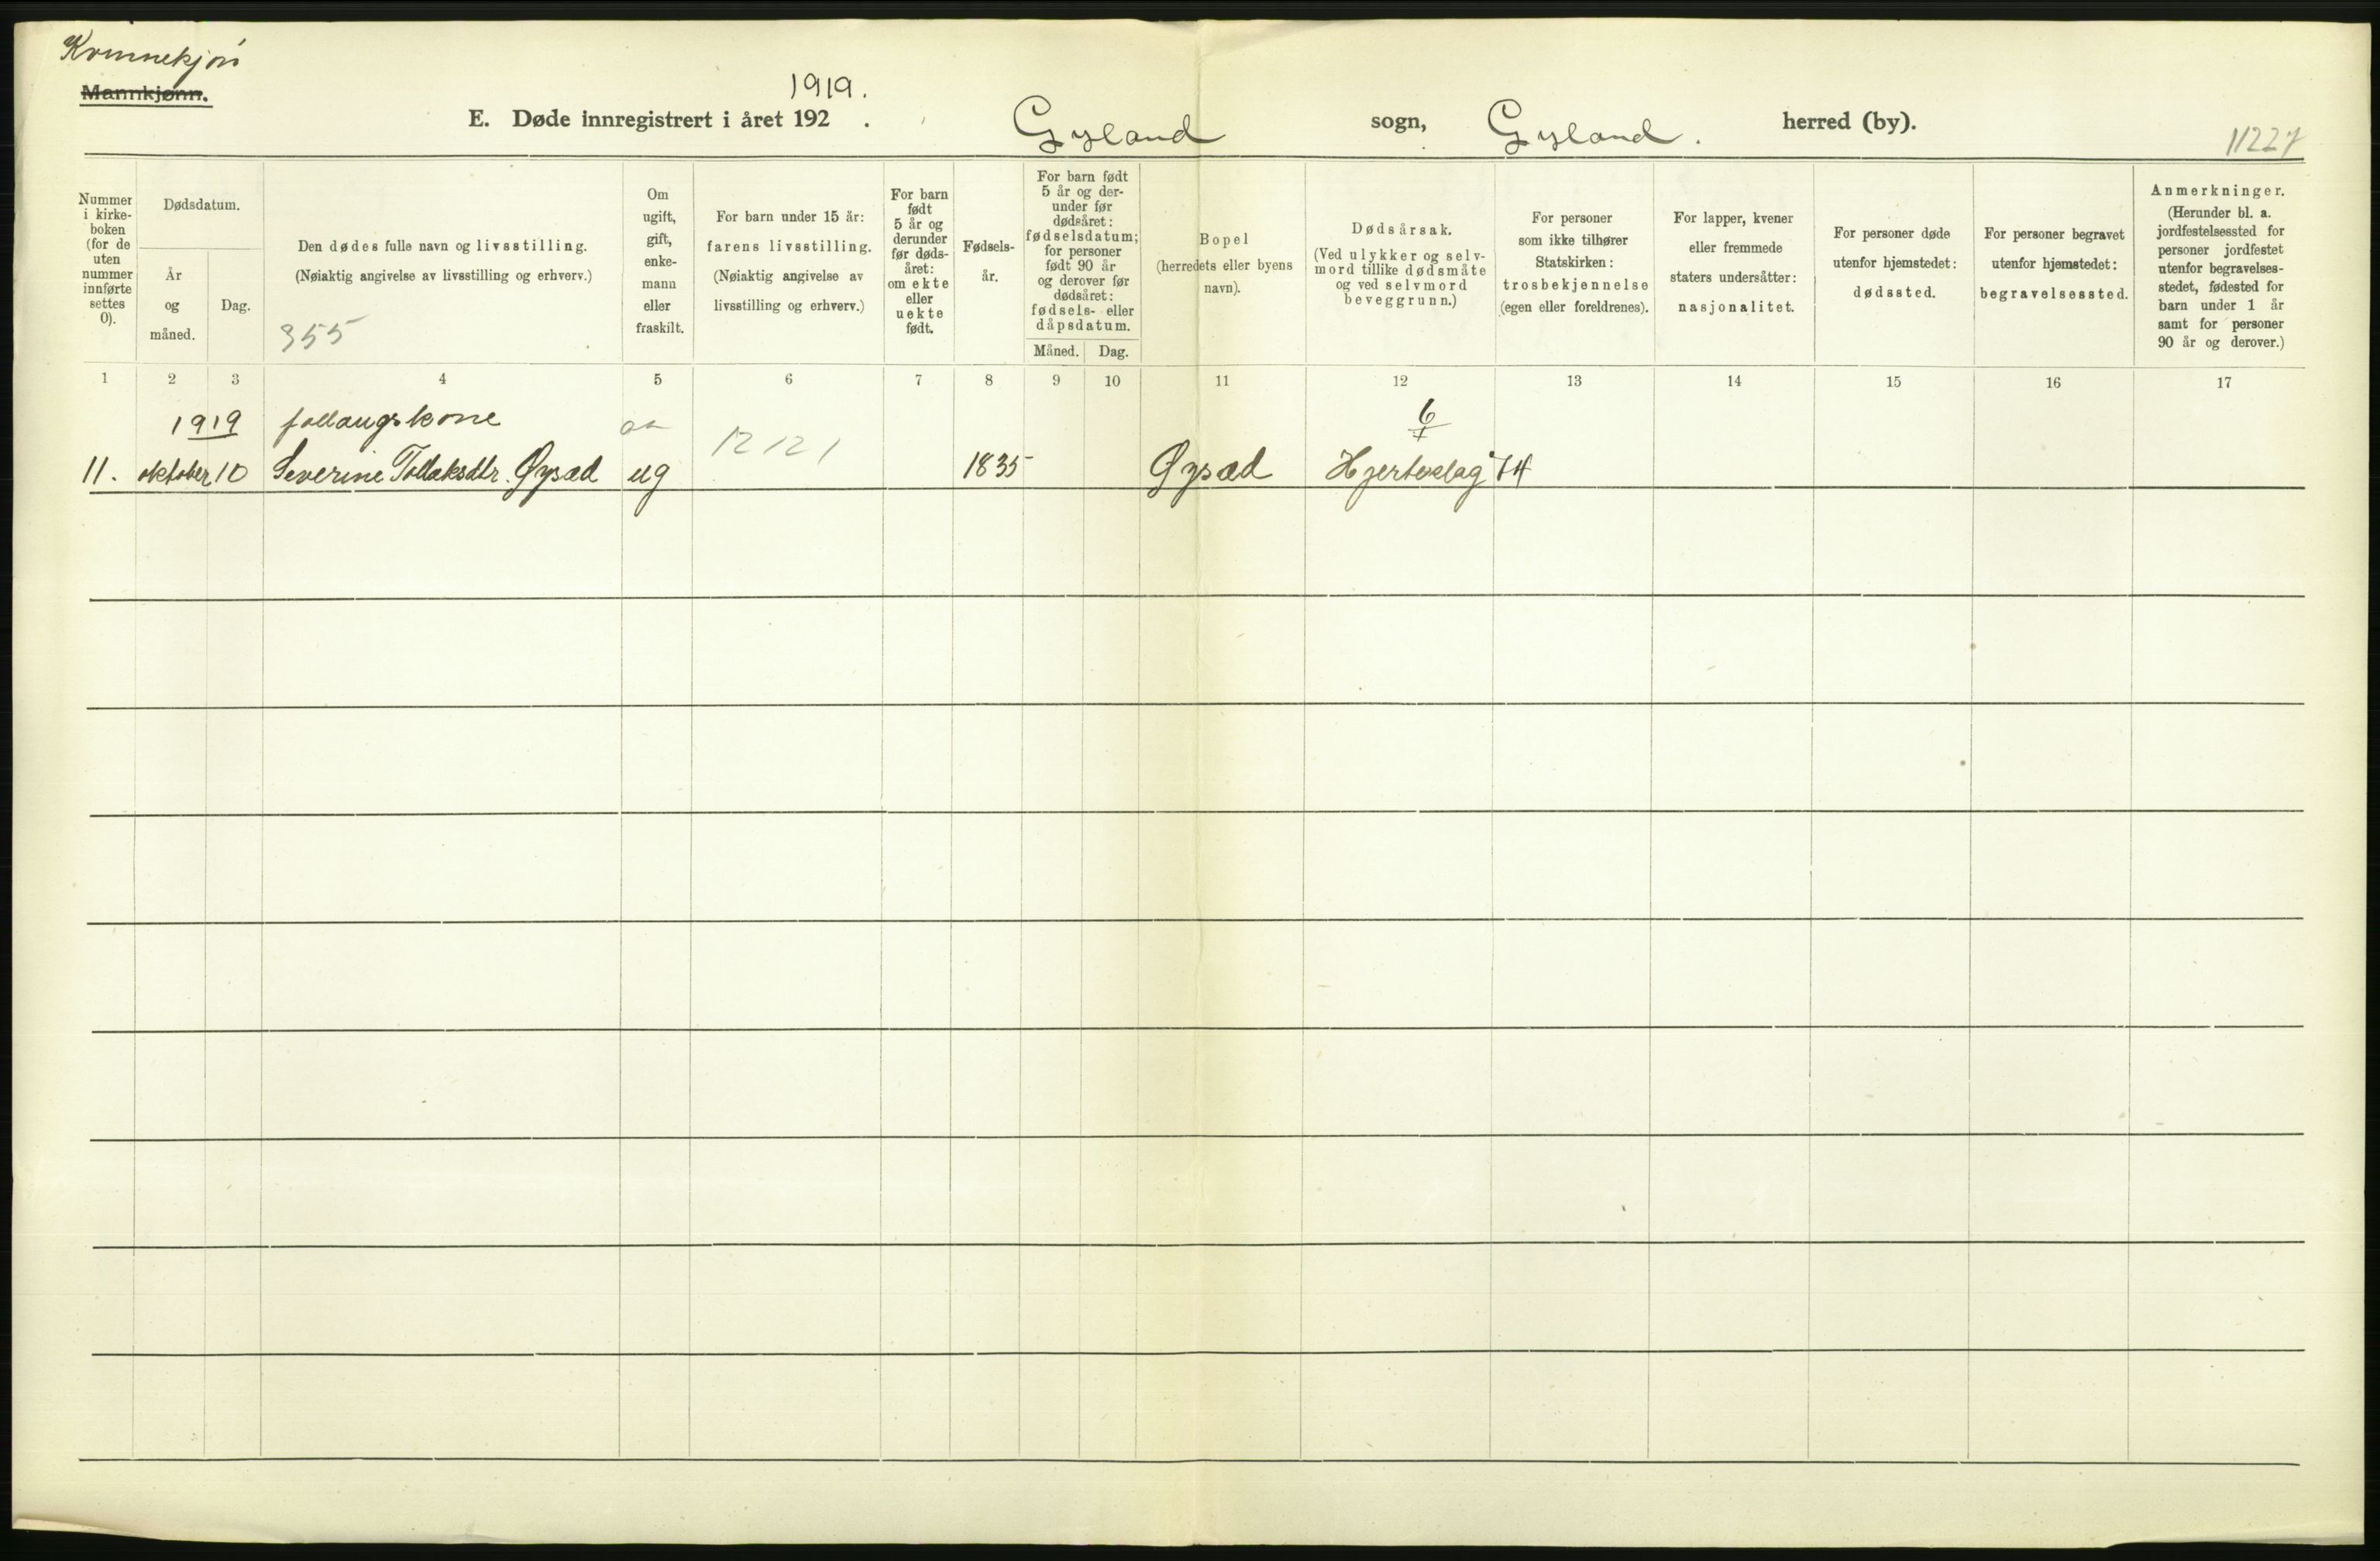 Kvinnekjøn
Mannkjønn.
1919.
E. Døde innregistrert i året 192 . Gyland sogn, Gyland. herred (by).
11227
Nummer i kirkeboken (for de uten nummer innførte settes 0).
Dødsdatum.
År og måned.
Dag.
Den dødes fulle navn og livsstilling.
(Nøiaktig angivelse av livsstilling og erhverv.)
355
Om ugift, gift, enkemann eller fraskilt.
For barn under 15 år:
farens livsstilling.
(Nøiaktig angivelse av
livsstilling og erhverv.)
For barn født 5 år og derunder før dødsåret: om ekte eller uekte født.
Fødselsår.
For barn født 5 år og derunder før dødsåret: fødselsdatum; for personer født 90 år og derover før dødsåret: fødsels- eller dåpsdatum.
Måned. Dag.
Bopel
(herredets eller byens
navn).
Dødsårsak.
(Ved ulykker og selvmord tillike dødsmåte og ved selvmord beveggrunn.)
For personer
som ikke tilhører
Statskirken:
trosbekjennelse
(egen eller foreldrenes).
For lapper, kvener
eller fremmede
staters undersåtter:
nasjonalitet.
For personer døde
utenfor hjemstedet:
dødssted.
For personer begravet
utenfor hjemstedet:
begravelsessted.
Anmerkninger.
(Herunder bl. a.
jordfestelsessted for
personer jordfestet
utenfor begravelses-
stedet, fødested for
barn under 1 år
samt for personer
90 år og derover.)
1 2 3 4 5 6 7 8 9 10 11 12 13 14 15 16 17
1919 follaugskone 6
12121
11. oktober 10 Severine Tollaksdtr. Øysæd ug 1835 Øysæd Hjerteslag 74